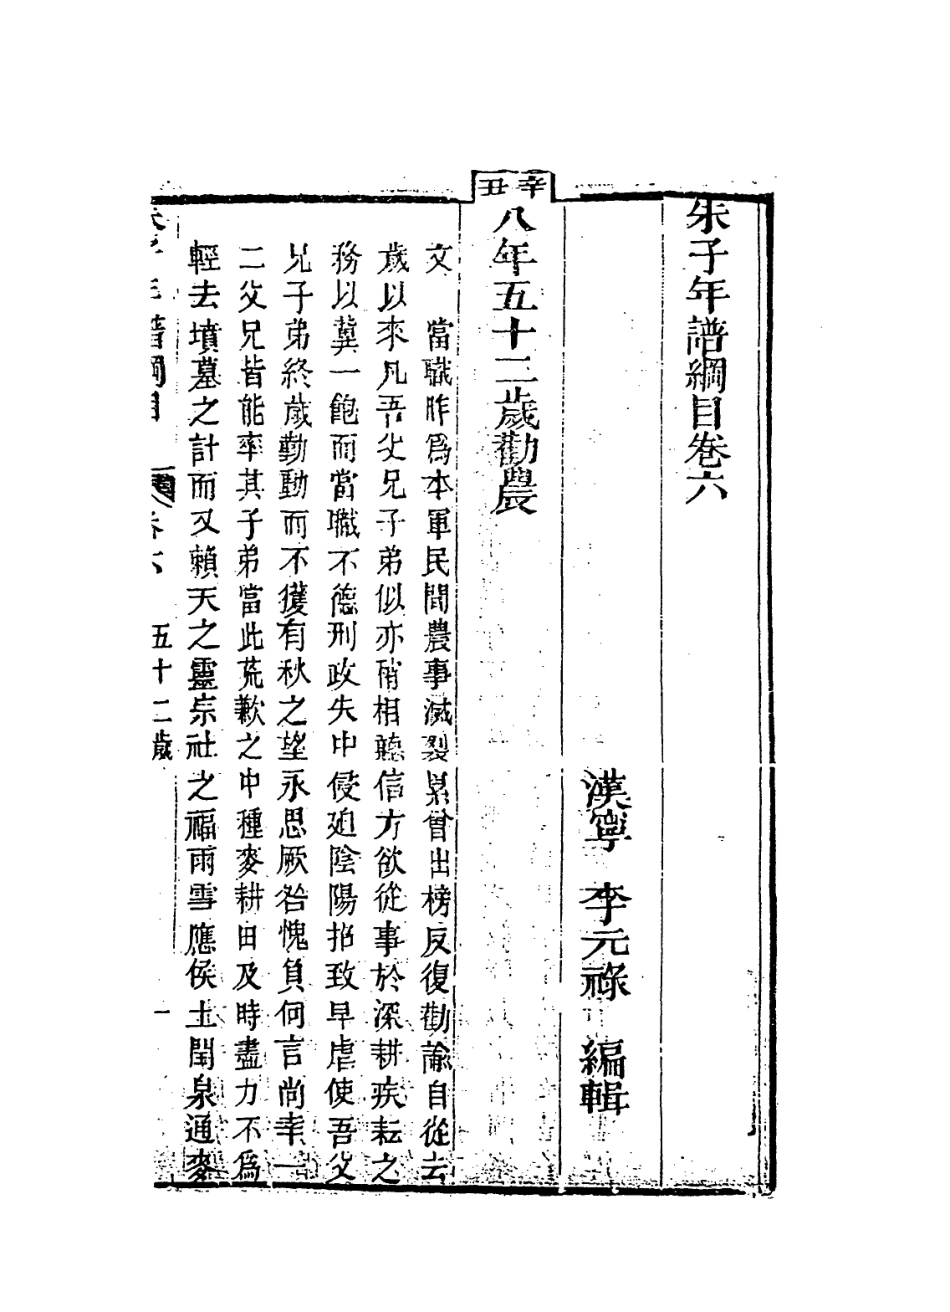 朱子年譜綱目卷六
漢寧　李元祿　編輯
辛丑
八年五十二歲勸農
文　當職昨爲本軍民間農事滅裂累曾出榜反復勸諭自從去
歲以來凡吾父兄子弟似亦稍相聽信方欲從事於深耕疾耘之
務以冀一飽而當職不德刑政失中侵廹陰陽招致旱虐使吾父
兄子弟終歲勤動而不獲有秋之望永思厥咎愧負何言尚幸一
二父兄皆能率其子弟當此荒歉之中種麥耕田及時盡力不爲
輕去墳墓之計而又賴天之靈宗社之福雨雪應侯土閏泉通麥
朱子年譜綱目　卷六　五十二歲　一